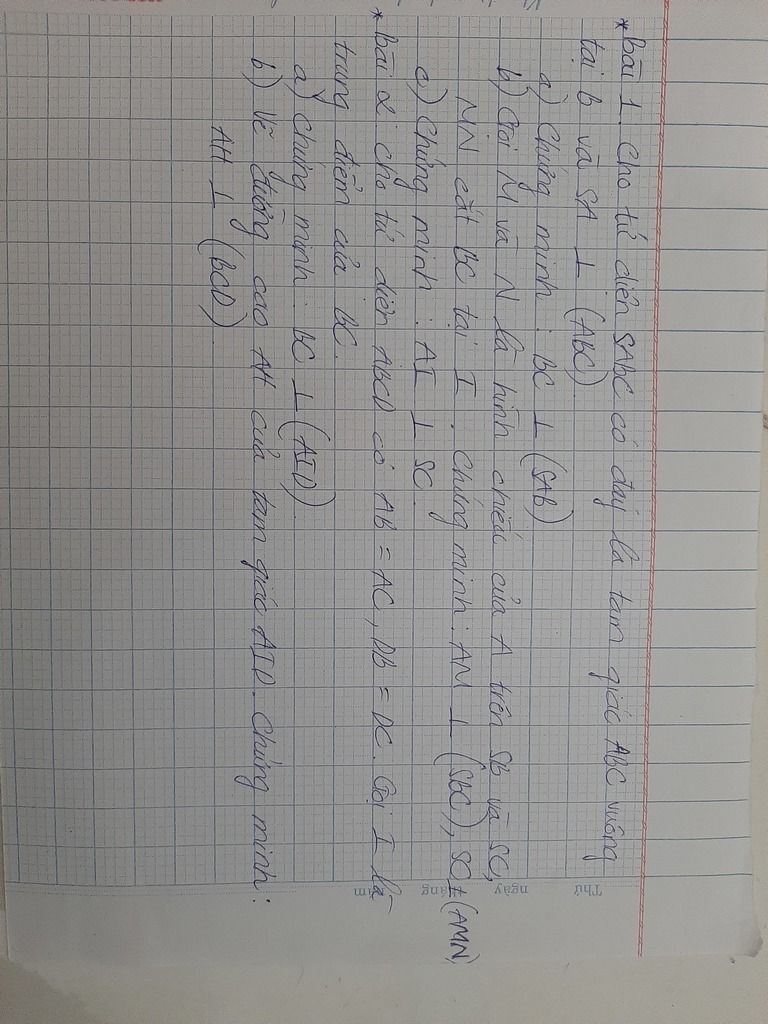 * Bài 1. Cho tứ diện SABC có đáy là tam giác ABC vuông
tại B và SA ⊥ (ABC)
a) Chứng minh: BC ⊥ (SAB)
b) Gọi M và N là hình chiếu của A trên SB và SC,
MN cắt BC tại I. Chứng minh: AM ⊥ (SBC), SC ⊥ (AMN)
c) Chứng minh: AI ⊥ SC.
* Bài 2: Cho tứ diện ABCD có AB = AC, DB = DC. Gọi I là
trung điểm của BC.
a) Chứng minh: BC ⊥ (AID)
b) Vẽ đường cao AH của tam giác AID. Chứng minh:
AH ⊥ (BCD).
Thứ ngày tháng năm